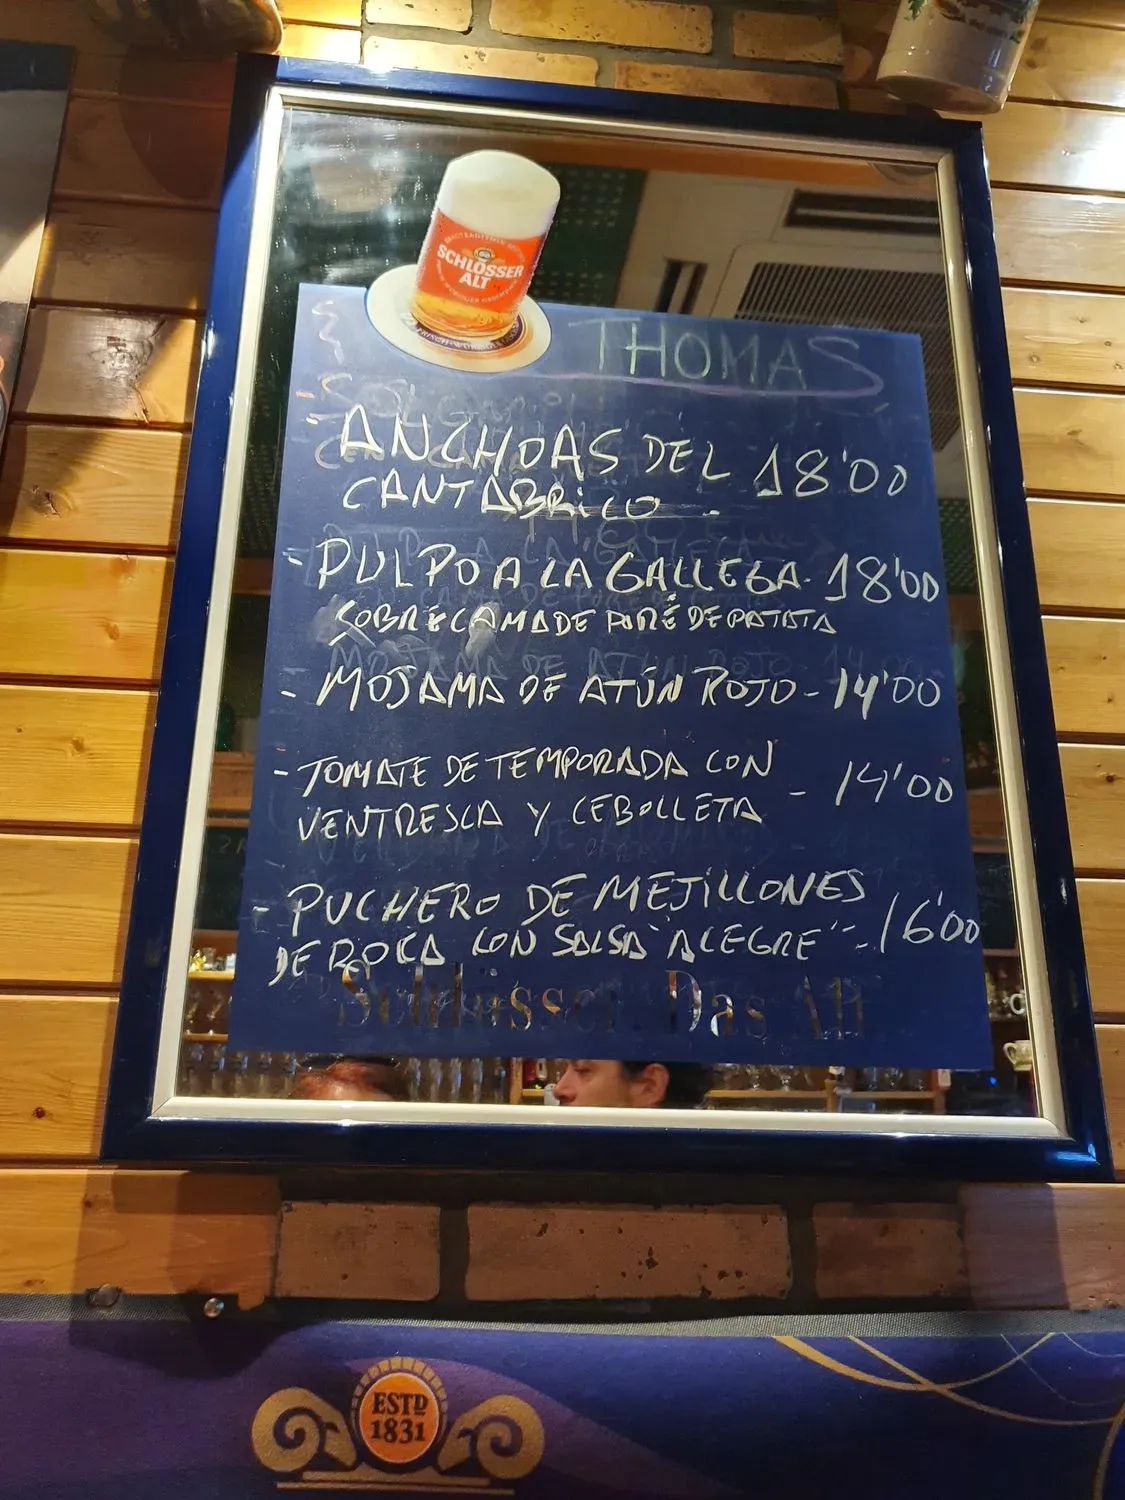 SCHLÖSSER
ALT
THOMAS
- ANCHOAS DEL 18'00
CANTABRICO -
- PULPO A LA GALLEGA - 18'00
SOBRE CAMA DE PURÉ DE PATATA
- MOJAMA DE ATÚN ROJO - 14'00
- TOMATE DE TEMPORADA CON
VENTRESCA Y CEBOLLETA - 14'00
- PUCHERO DE MEJILLONES
DE ROCA CON SALSA "ALEGRE" - 16'00
Schlösser. Das Alt
ESTD
1831